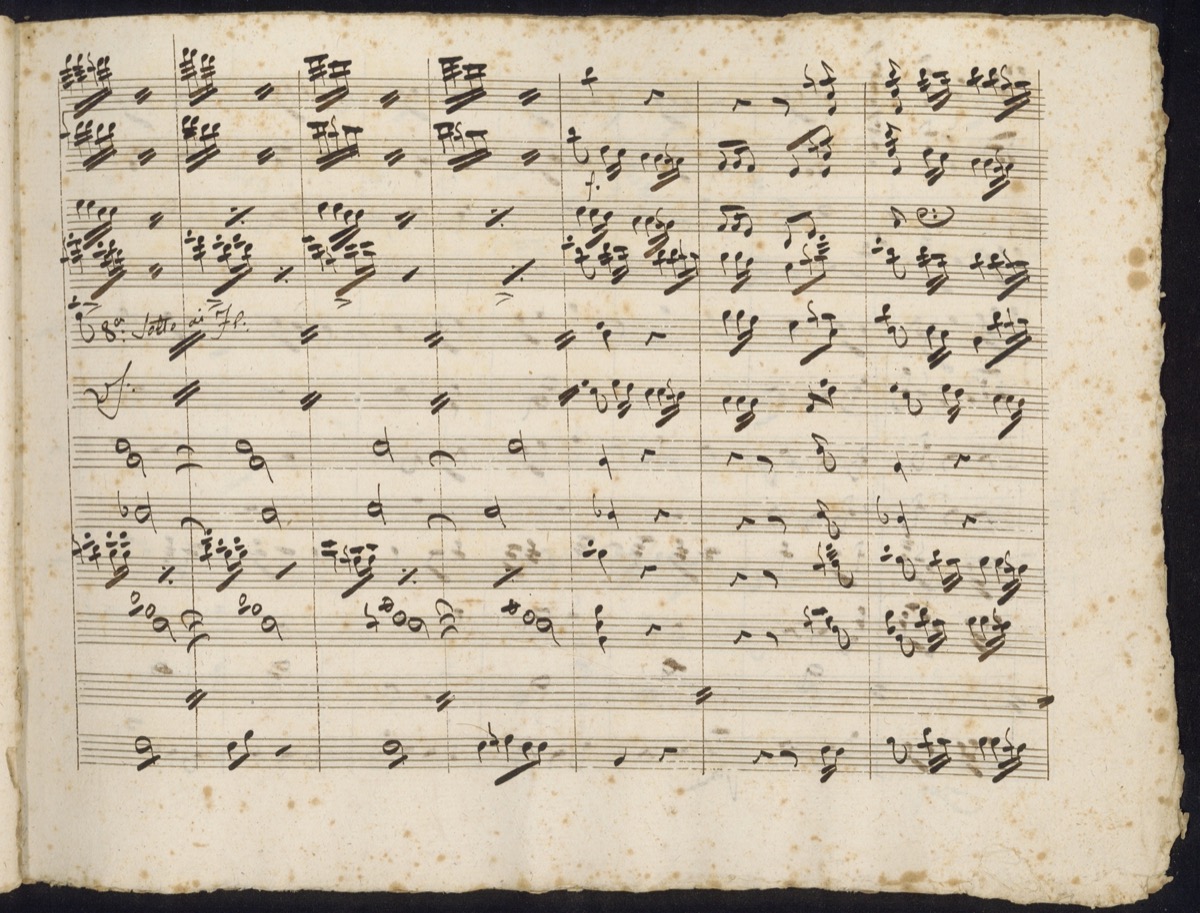 f.
8ª Sotto ai Fl.